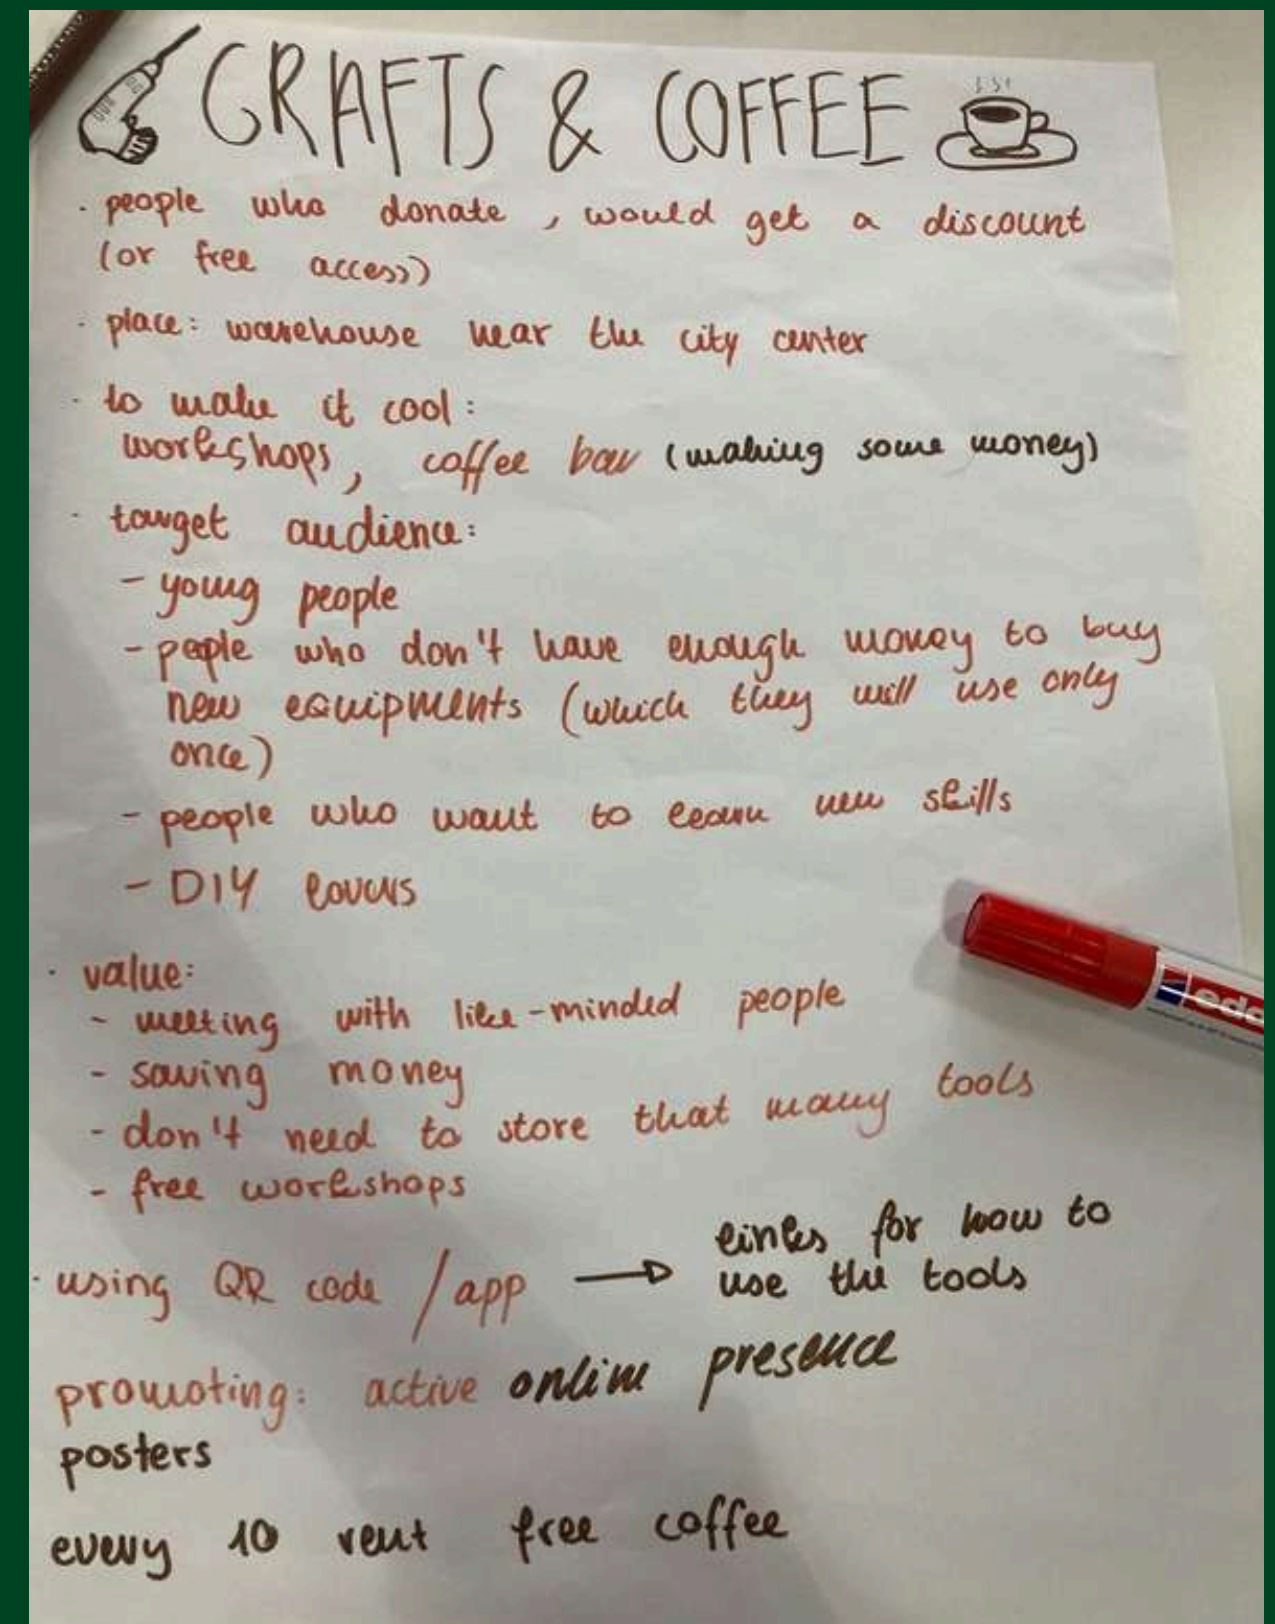 CRAFTS & COFFEE
· people who donate, would get a discount
(or free access)
· place: warehouse near the city center
· to make it cool:
workshops, coffee bar (making some money)
· target audience:
- young people
- peple who don't have enough money to buy
new equipments (which they will use only
once)
- people who want to learn new skills
- DIY lovers
· value:
- meeting with like-minded people
- saving money
- don't need to store that many tools
- free workshops
· using QR code / app → links for how to
use the tools
promoting: active online presence
posters
every 10 rent free coffee